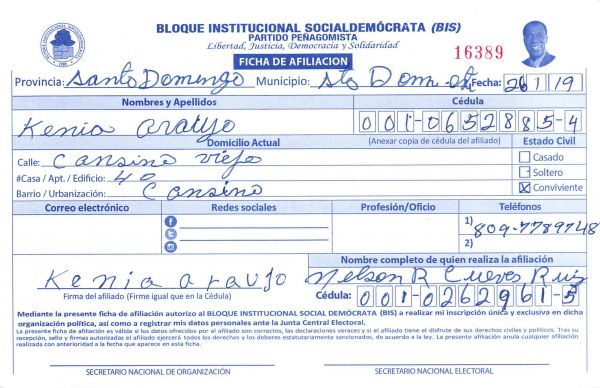 BLOQUE INSTITUCIONAL SOCIALDEMÓCRATA (BIS)
PARTIDO PEÑAGOMISTA
Libertad, Justicia, Democracia y Solidaridad
FICHA DE AFILIACION
16389
Provincia: Santo Domingo Municipio: Sto Dom. Fecha: 26 1 19
Nombres y Apellidos Cédula
Kenia Araujo 001-0652885-4
Domicilio Actual (Anexar copia de cédula del afiliado) Estado Civil
Calle: Cansino viejo Casado
#Casa / Apt. / Edificio: 40 Soltero
Barrio / Urbanización: Cansino X Conviviente
Correo electrónico Redes sociales Profesión/Oficio Teléfonos
1) 809-7789748
2)
Nombre completo de quien realiza la afiliación
Kenia Araujo Nelson R Cuevas Ruiz
Firma del afiliado (Firme igual que en la Cédula) Cédula: 001-0262961-5
Mediante la presente ficha de afiliación autorizo al BLOQUE INSTITUCIONAL SOCIAL DEMÓCRATA (BIS) a realizar mi inscripción única y exclusiva en dicha
organización política, así como a registrar mis datos personales ante la Junta Central Electoral.
La presente ficha de afiliación es válida si los datos ofrecidos por el afiliado son correctos, las declaraciones veraces y si el afiliado tiene el disfrute de sus derechos civiles y políticos. Tras su
recepción, sello y firmas autorizadas el afiliado ejercerá todos los derechos y los deberes estatutariamente sancionados, de acuerdo a la ley. La presente afiliación anula cualquier afiliación
realizada con anterioridad a la fecha que aparece en esta ficha.
SECRETARIO NACIONAL DE ORGANIZACIÓN SECRETARIO NACIONAL ELECTORAL